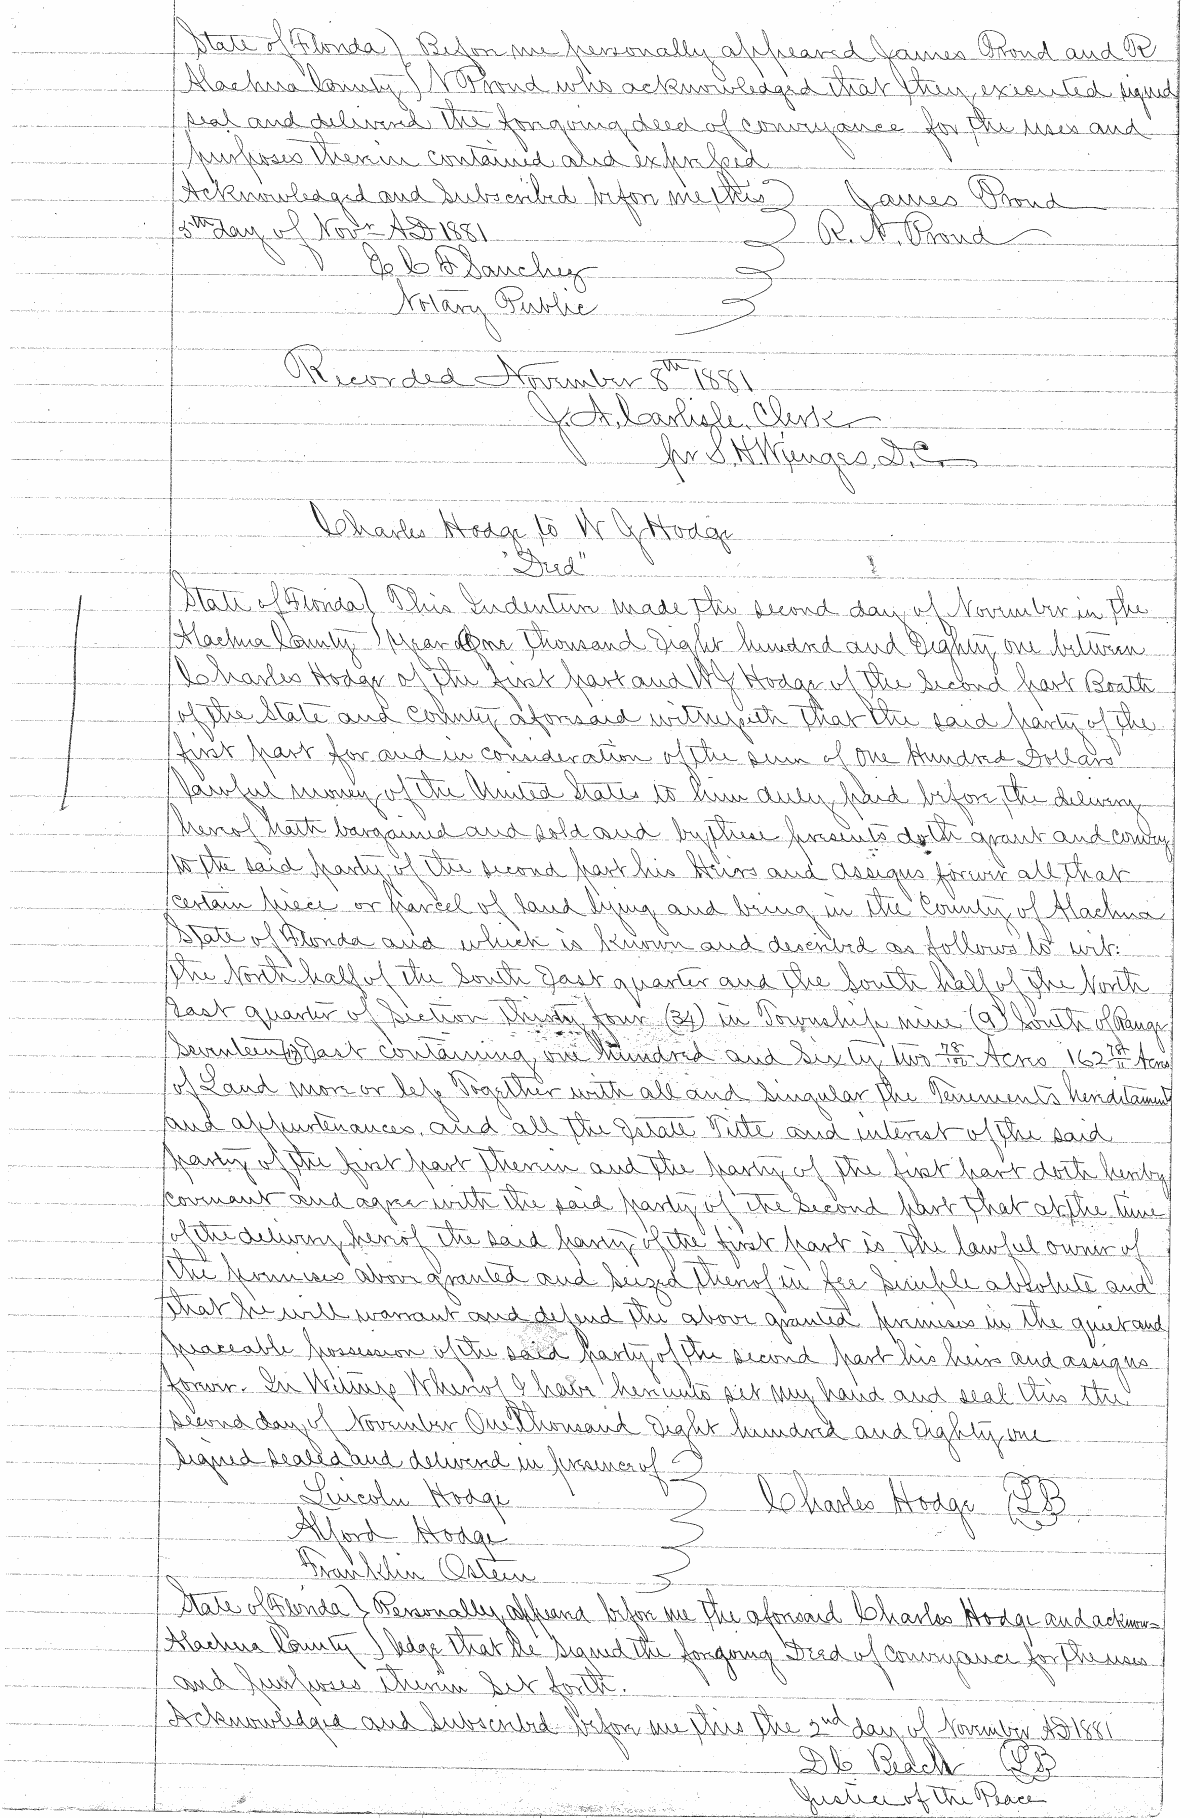 State of Florida ) Before me personally appeared James Proud and R
Alachua County ) N Proud who acknowledged that they executed signed
seal and delivered the foregoing deed of conveyance for the uses and
purposes therein contained and expressed
Acknowledged and Subscribed before me this } James Proud
5th day of Novr AD 1881 } R. N. Proud
E C F Sanchez
Notary Public
Recorded November 8th 1881
J. A. Carlisle, Clerk
pr S. H. Wienges, D.C.
Charles Hodge to W J Hodge
"Deed"
State of Florida ) This Indenture made the second day of November in the
Alachua County ) Year One Thousand Eight hundred and Eighty one between
Charles Hodge of the first part and W J Hodge of the Second part Boath
of the State and County aforesaid witnesseth that the said party of the
first part for and in consideration of the sum of One Hundred Dollars
lawful money of the United States to him duly paid before the delivery
hereof hath bargained and sold and by these presents doth grant and convey
to the said party of the second part his Heirs and Assigns forever all that
certain piece or parcel of land lying and being in the County of Alachua
State of Florida and which is known and described as follows to wit:
The North half of the South East quarter and the South half of the North
East quarter of Section Thirty four (34) in Township nine (9) South of Range
Seventeen East containing one hundred and Sixty two Acres 162 Acres
of Land more or less Together with all and Singular the Tenements hereditaments
and appurtenances, and all the Estate Title and interest of the said
party of the first part therein and the party of the first part doth hereby
covenant and agree with the said party of the Second part that at the time
of the delivery hereof the said party of the first part is the lawful owner of
the premises above granted and seized thereof in fee Simple absolute and
that he will warrant and defend the above granted premises in the quiet and
peaceable possession of the said party of the second part his heirs and assigns
forever. In Witness Whereof I have hereunto set my hand and seal this the
second day of November One Thousand Eight hundred and Eighty one
Signed sealed and delivered in presence of }
Lincoln Hodge } Charles Hodge (LS)
Alford Hodge
Franklin Osteen
State of Florida } Personally appeard before me the aforesaid Charles Hodge and acknow=
Alachua County ) ledge that he Signed the foregoing Deed of Conveyance for the uses
and purposes therein Set forth.
Acknowledged and Subscribed before me this the 2nd day of November AD 1881
D C Beach (LS)
Justice of the Peace